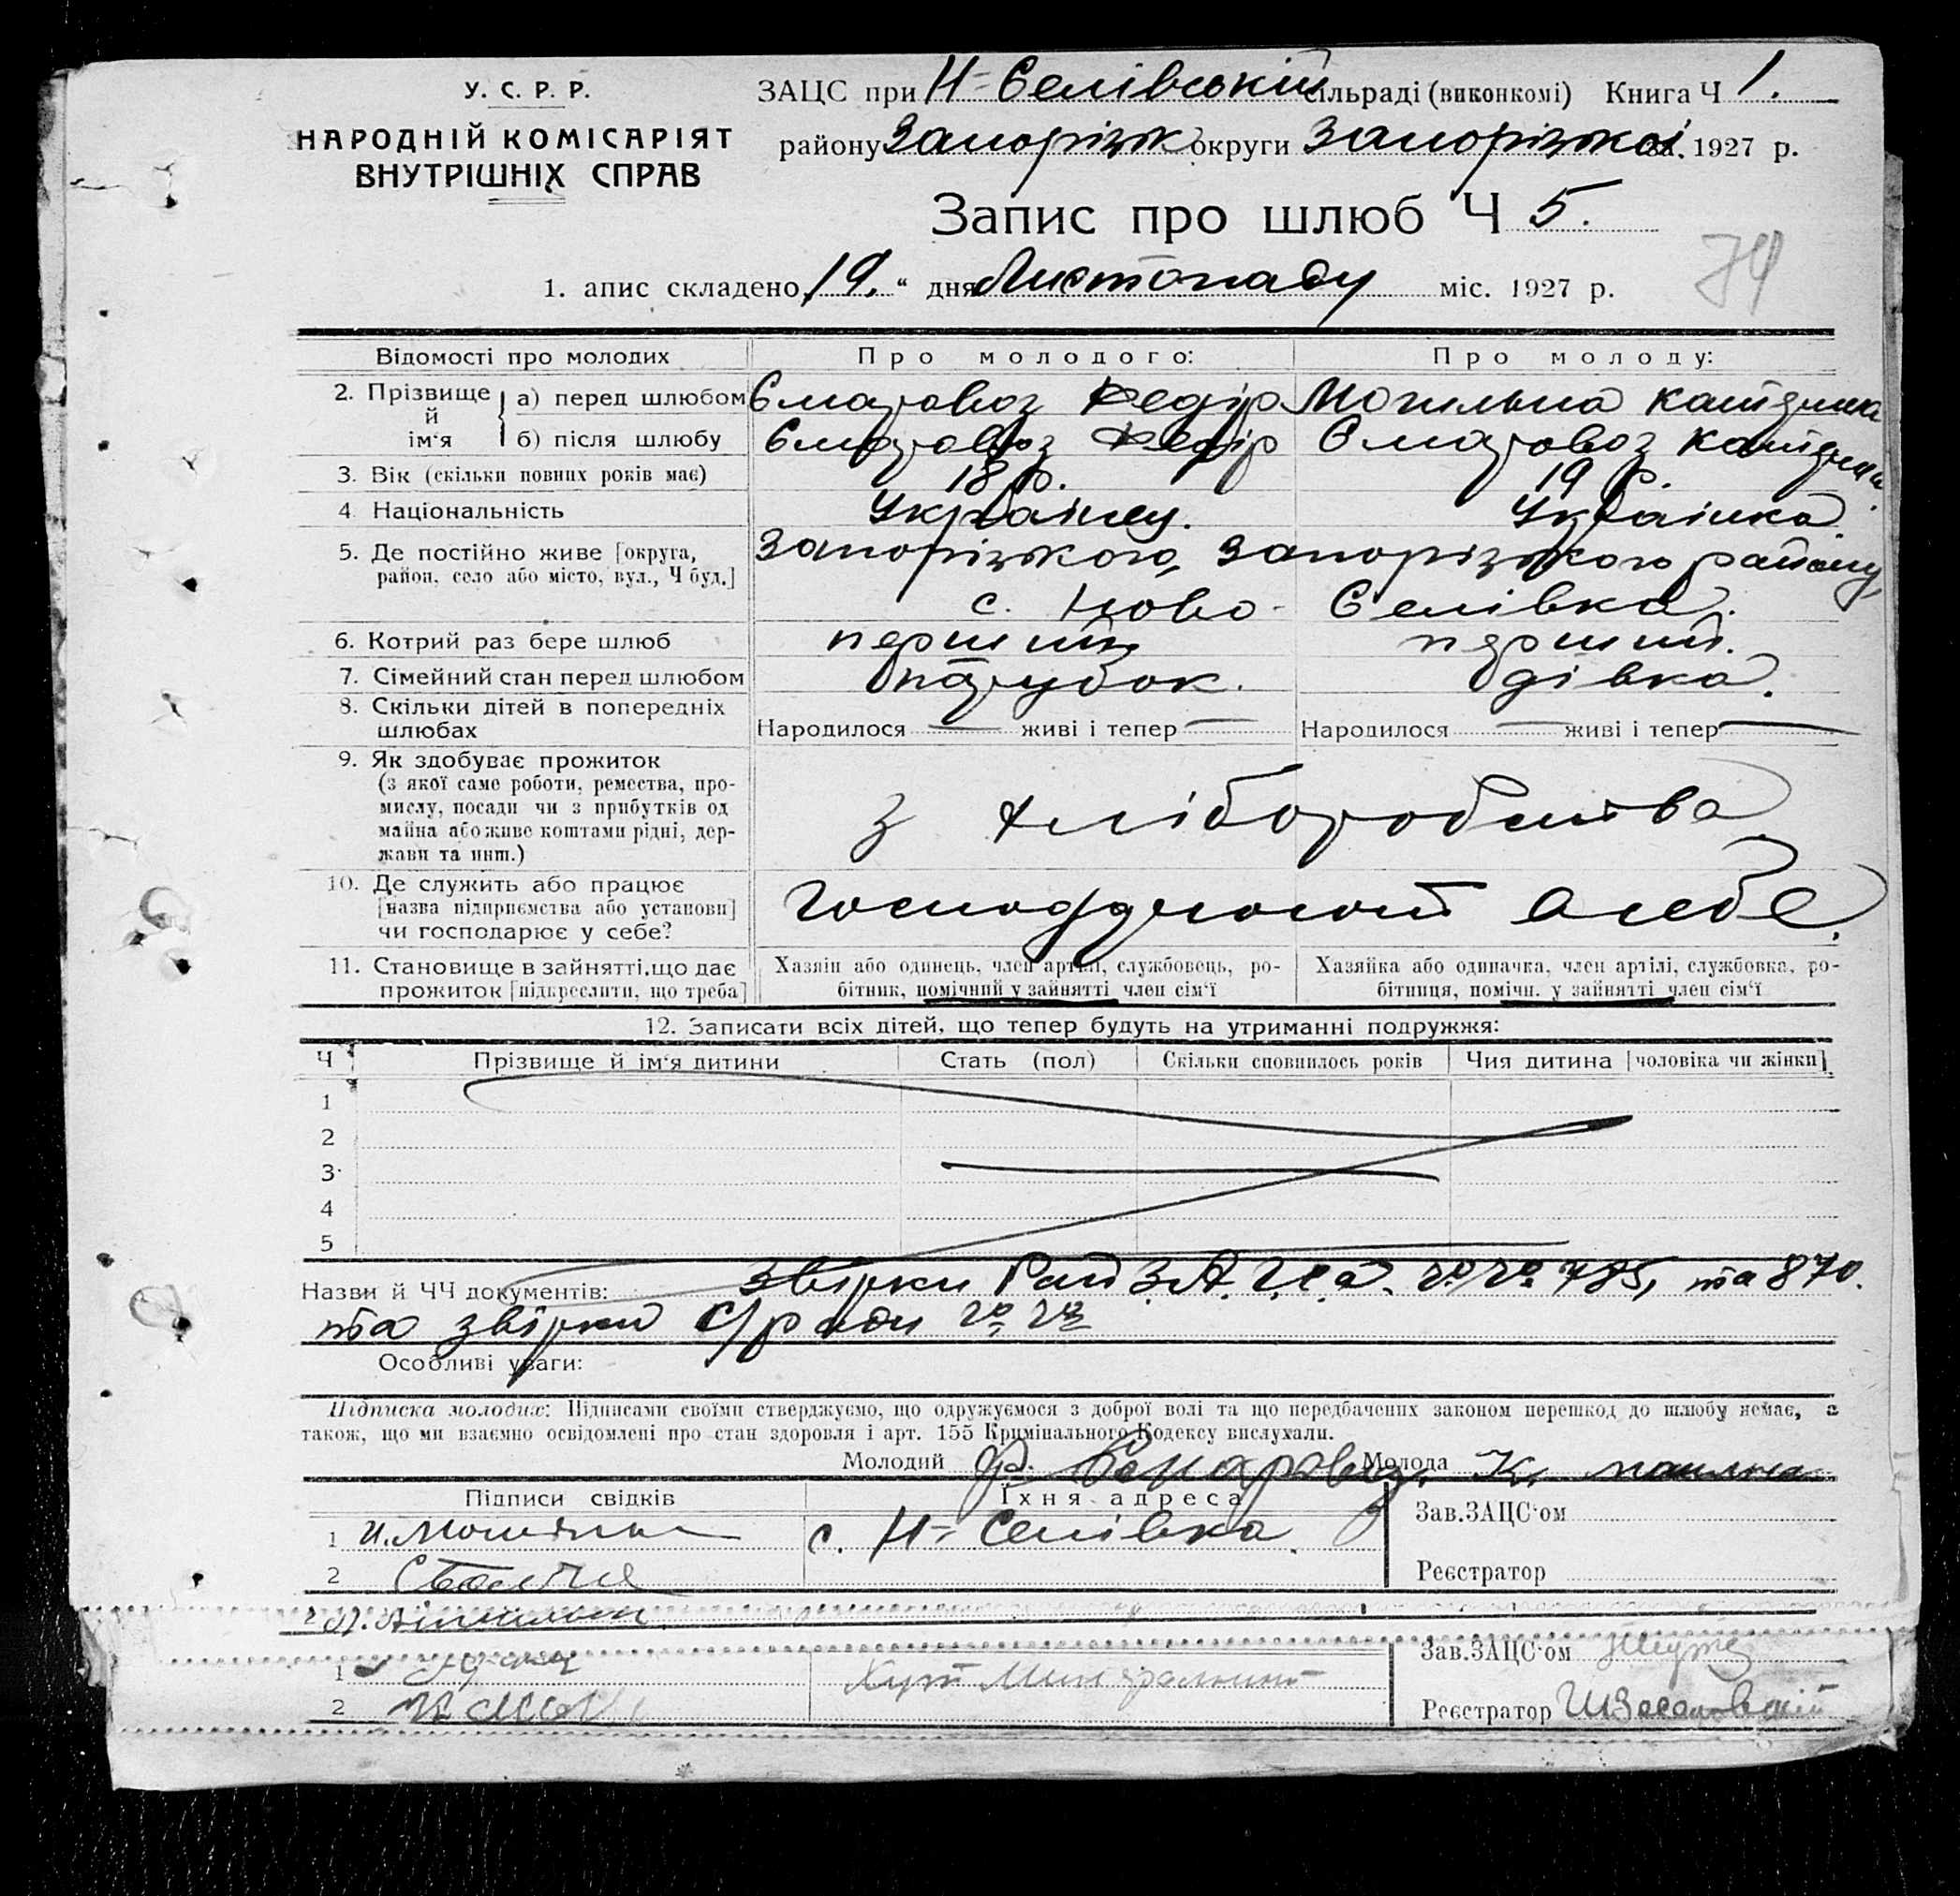 У. С. Р. Р.
НАРОДНІЙ КОМІСАРІЯТ
ВНУТРІШНІХ СПРАВ
ЗАЦС при Н-Селівській сільраді (виконкомі) Книга Ч 1.
району Запорізьк округи Запорізької за 1927 р.
Запис про шлюб Ч 5.
74
1. апис складено „19.“ дня Листопаду міс. 1927 р.
Відомості про молодих Про молодого: Про молоду:
2. Прізвище й ім‘я
а) перед шлюбом Федір Могильна Катерина
б) після шлюбу Федір Катерина
3. Вік (скільки повних років має) 18 р. 19 р.
4. Національність Українец. Українка.
5. Де постійно живе [округа, Запорізького, Запорізького району,
район, село або місто, вул., Ч буд.]
с. Ново-Селівка.
6. Котрий раз бере шлюб перший перший.
7. Сімейний стан перед шлюбом парубок. дівка.
8. Скільки дітей в попередніх
шлюбах Народилося — живі і тепер — Народилося — живі і тепер —
9. Як здобуває прожиток
(з якої саме роботи, ремества, про-
мислу, посади чи з прибутків од
майна або живе коштами рідні, дер-
жави та инш.)
з хліборобства
10. Де служить або працює
[назва підприємства або установи]
чи господарює у себе?
себе.
11. Становище в зайнятті, що дає Хазяїн або одинець, член артілі, службовець, ро- Хазяйка або одиначка, член артілі, службовка, ро-
прожиток [підкреслити, що треба] бітник, помічний у зайнятті член сім‘ї бітниця, помічн. у зайнятті член сім‘ї
12. Записати всіх дітей, що тепер будуть на утриманні подружжя:
Ч Прізвище й ім‘я дитини Стать (пол) Скільки сповнилось років Чия дитина [чоловіка чи жінки]
1
2
3
4
5
Назви й ЧЧ документів: звірки Рай З.А.Г.С.а. №№ 785, та 870.
та звірки с/ради
Особливі уваги:
Підписка молодих: Підписами своїми стверджуємо, що одружуємося з доброї волі та що передбачених законом перешкод до шлюбу немає, а
також, що ми взаємно освідомлені про стан здоровля і арт. 155 Кримінального Кодексу вислухали.
Молодий Ф. Молода К.
Підписи свідків Їхня адреса Зав.ЗАЦС‘ом
1 с. Н-Селівка.
2 Реєстратор
1 Хут Зав.ЗАЦС‘ом
2 Реєстратор